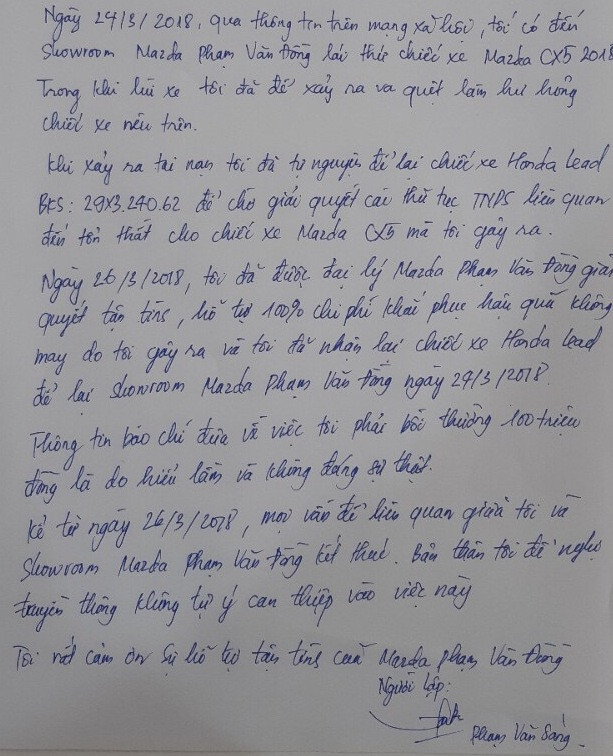 Ngày 24/3/2018, qua thông tin trên mạng xã hội, tôi có đến
Showroom Mazda Phạm Văn Đồng lái thử chiếc xe Mazda CX5 2018
Trong khi lái xe tôi đã để xảy ra va quệt làm hư hỏng
chiếc xe nêu trên.
Khi xảy ra tai nạn tôi đã tự nguyện để lại chiếc xe Honda Lead
BKS: 29X3.240.62 để chờ giải quyết các thủ tục TNDS liên quan
đến tổn thất cho chiếc xe Mazda CX5 mà tôi gây ra.
Ngày 26/3/2018, tôi đã được đại lý Mazda Phạm Văn Đồng giải
quyết tận tình, hỗ trợ 100% chi phí khắc phục hậu quả không
may do tôi gây ra và tôi đã nhận lại chiếc xe Honda Lead
để lại Showroom Mazda Phạm Văn Đồng ngày 24/3/2018.
Thông tin báo chí đưa về việc tôi phải bồi thường 100 triệu
đồng là do hiểu lầm và không đúng sự thật.
Kể từ ngày 26/3/2018, mọi vấn đề liên quan giữa tôi và
Showroom Mazda Phạm Văn Đồng kết thúc. Bản thân tôi đề nghị
truyền thông không tự ý can thiệp vào việc này
Tôi rất cảm ơn sự hỗ trợ tận tình của Mazda Phạm Văn Đồng
Người lập:
Phạm Văn Sáng